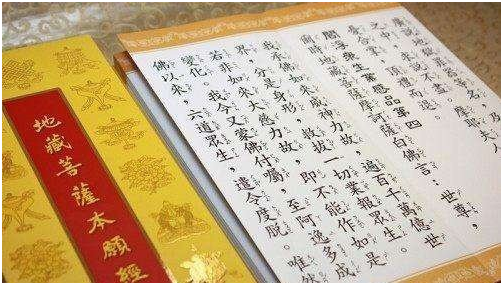 廣說地獄罪
之中，求說不盡。摩耶夫人
憂合掌，頂禮而退。
閻浮眾生業感品第四
爾時地藏菩薩摩訶薩白佛言：世尊，
我承佛如來威神力故，遍百千萬億世
界，分是身形，救拔一切業報眾生。
若非如來大慈力故，即不能作如是
變化。我今又蒙佛付囑，至阿逸多成
佛以來，六道眾生，遣令度脫。唯然
地藏菩薩本願經